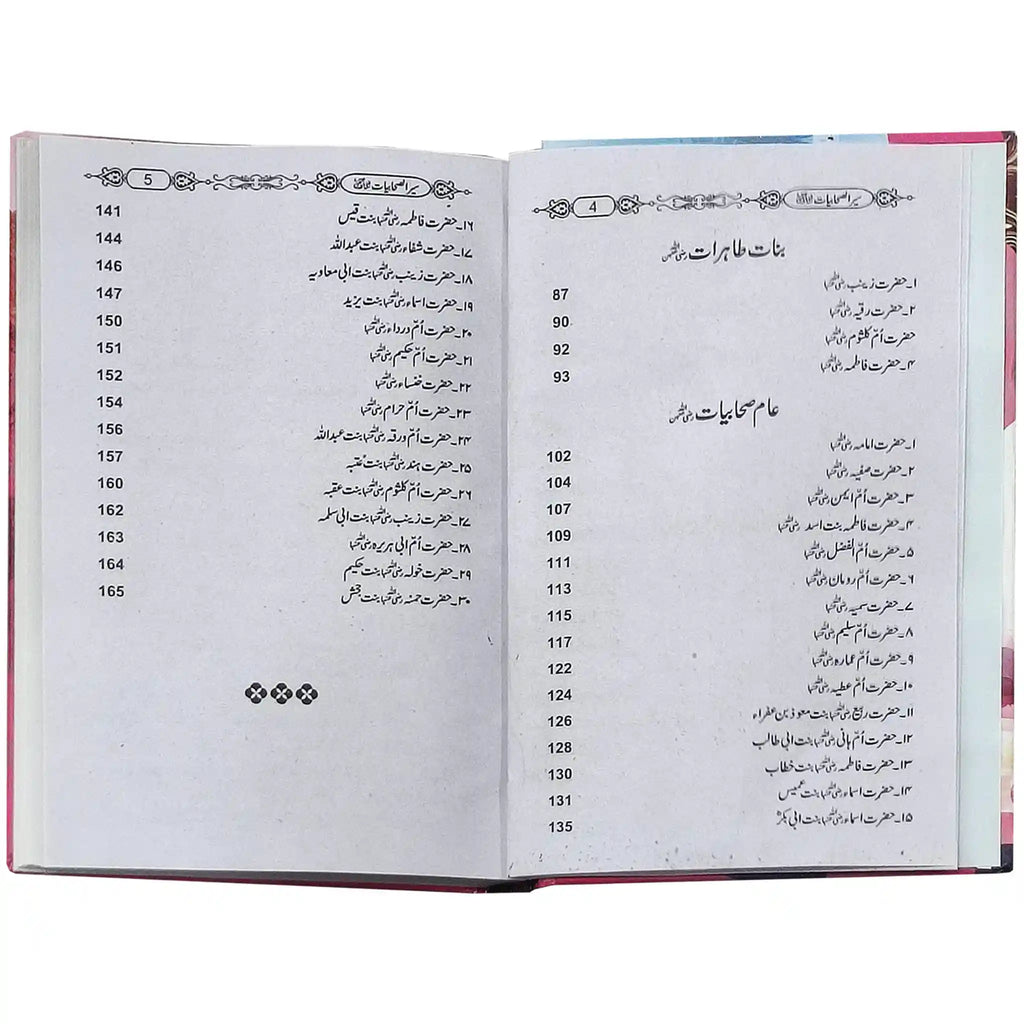 سیر الصحابیات رضی اللہ عنہن 4
بنات طاہرات رضی اللہ عنہن
۱۔حضرت زینب رضی اللہ عنہا 87
۲۔حضرت رقیہ رضی اللہ عنہا 90
حضرت اُمّ کلثوم رضی اللہ عنہا 92
۴۔حضرت فاطمہ رضی اللہ عنہا 93
عام صحابیات رضی اللہ عنہن
۱۔حضرت امامہ رضی اللہ عنہا 102
۲۔حضرت صفیہ رضی اللہ عنہا 104
۳۔حضرت اُمّ ایمن رضی اللہ عنہا 107
۴۔حضرت فاطمہ بنت اسد رضی اللہ عنہا 109
۵۔حضرت اُمّ الفضل رضی اللہ عنہا 111
۶۔حضرت اُمّ رومان رضی اللہ عنہا 113
۷۔حضرت سمیہ رضی اللہ عنہا 115
۸۔حضرت اُمّ سلیم رضی اللہ عنہا 117
۹۔حضرت اُمّ عمارہ رضی اللہ عنہا 122
۱۰۔حضرت اُمّ عطیہ رضی اللہ عنہا 124
۱۱۔حضرت ربیع رضی اللہ عنہا بنت معوذ بن عفراء 126
۱۲۔حضرت اُمّ ہانی رضی اللہ عنہا بنت ابی طالب 128
۱۳۔حضرت فاطمہ رضی اللہ عنہا بنت خطاب 130
۱۴۔حضرت اسماء رضی اللہ عنہا بنت عمیس 131
۱۵۔حضرت اسماء رضی اللہ عنہا بنت ابی بکرؓ 135
سیر الصحابیات رضی اللہ عنہن 5
۱۶۔حضرت فاطمہ رضی اللہ عنہا بنت قیس 141
۱۷۔حضرت شفاء رضی اللہ عنہا بنت عبداللہ 144
۱۸۔حضرت زینب رضی اللہ عنہا بنت ابی معاویہ 146
۱۹۔حضرت اسماء رضی اللہ عنہا بنت یزید 147
۲۰۔حضرت اُمّ ورداء رضی اللہ عنہا 150
۲۱۔حضرت اُمّ حکیم رضی اللہ عنہا 151
۲۲۔حضرت خنساء رضی اللہ عنہا 152
۲۳۔حضرت اُمّ حرام رضی اللہ عنہا 154
۲۴۔حضرت اُمّ ورقہ رضی اللہ عنہا بنت عبداللہ 156
۲۵۔حضرت ہند رضی اللہ عنہا بنت عُتبہ 157
۲۶۔حضرت اُمّ کلثوم رضی اللہ عنہا بنت عقبہ 160
۲۷۔حضرت زینب رضی اللہ عنہا بنت ابی سلمہ 162
۲۸۔حضرت اُمّ ابی ہریرہ رضی اللہ عنہا 163
۲۹۔حضرت خولہ رضی اللہ عنہا بنت حکیم 164
۳۰۔حضرت حمنہ رضی اللہ عنہا بنت جحش 165